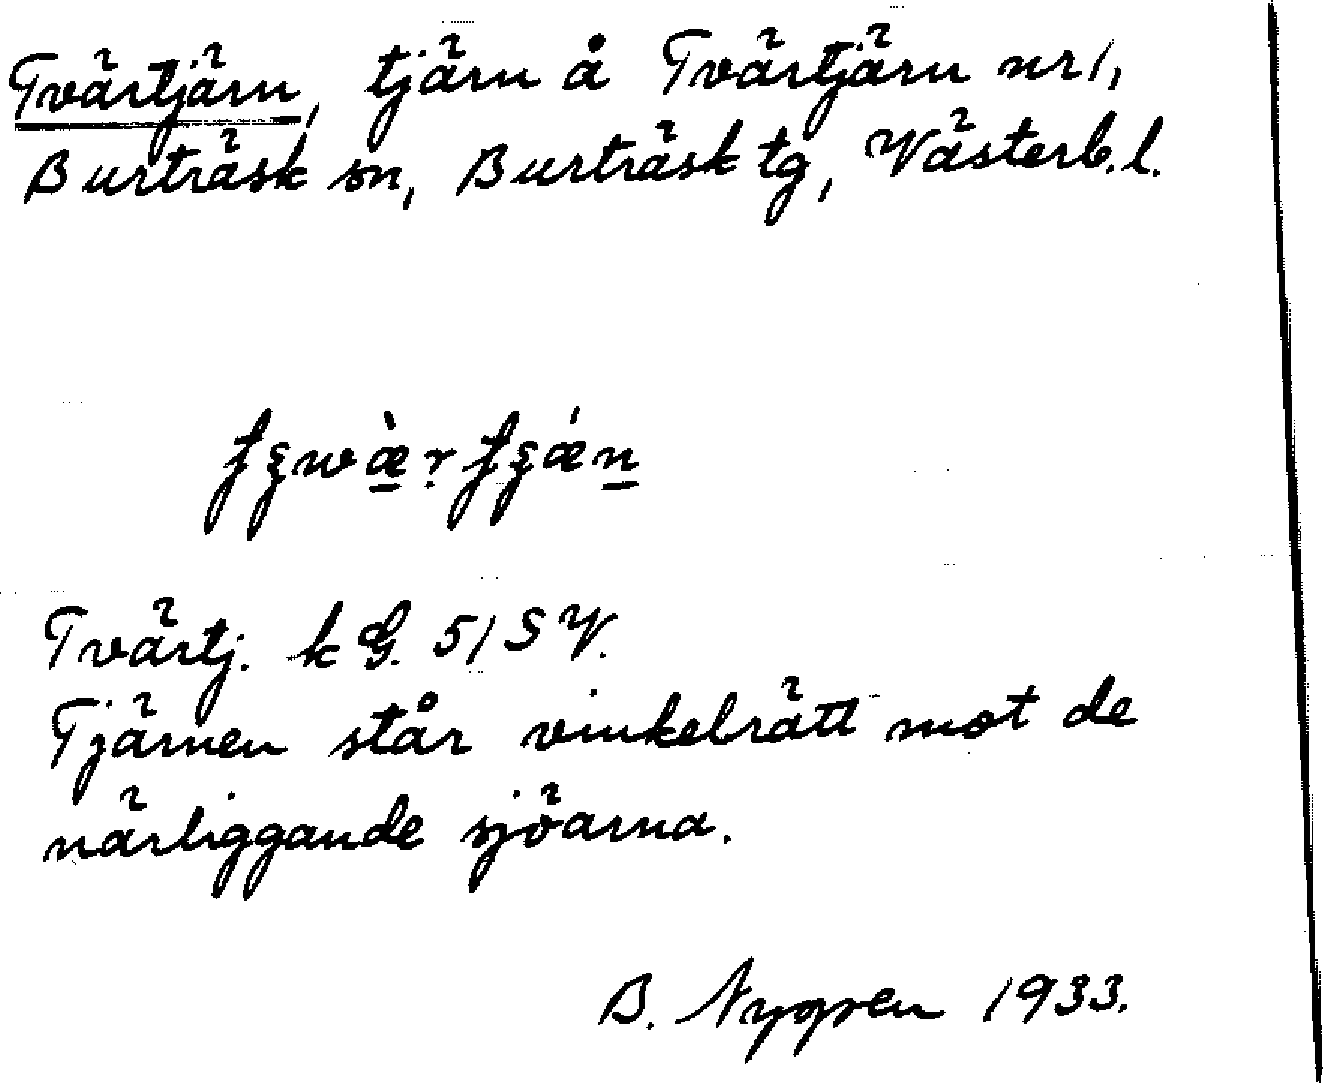 Tvärtjärn, tjärn å Tvärtjärn nr 1,
Burträsk sn, Burträsk tg, Västerb.l.
Tvärtj. k G. 51 SV.
Tjärnen står vinkelrätt mot de
närliggande sjöarna.
B. Nygren 1933.